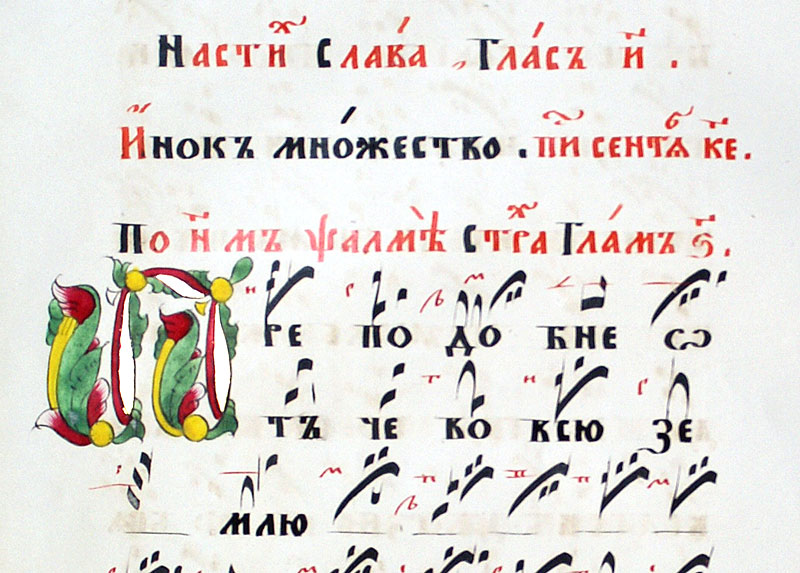 Настих҃ Слава , Гла́съ и҃ .
И҆нокъ мно́жество . пи҃ сентѧ҃ к҃е .
По н҃ мъ ѱалмѣ̀ Стр҃а Гла́мъ ѕ҃ .
П ре по до бне ѡ
тъ че во всю зе
млю